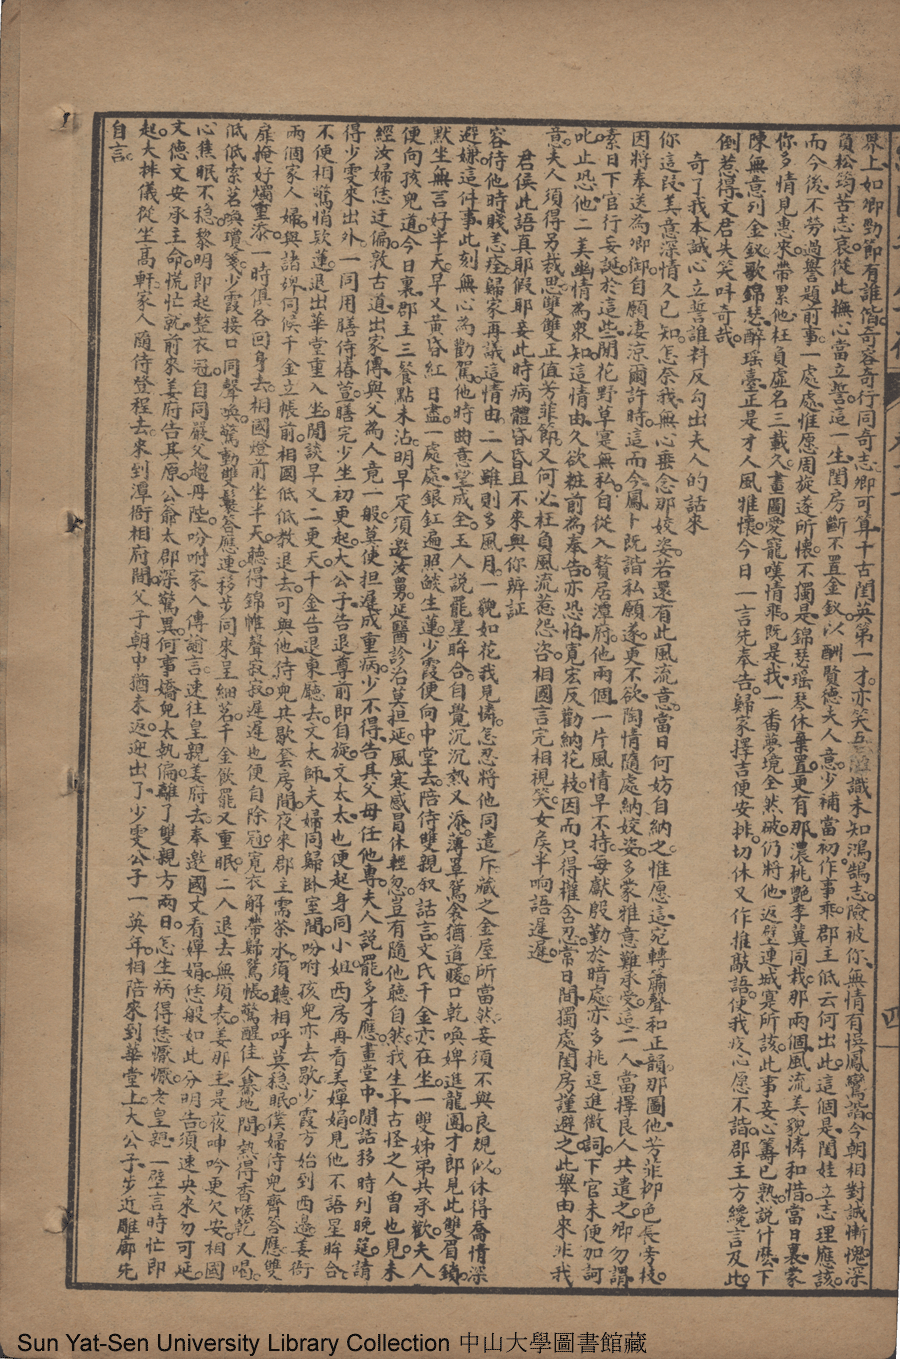 界上如卿勁節有誰偕奇容奇行同奇志卿可算千古閨英第一才亦笑吾識未知鴻鵠志險被你無情有悞鳳鸞諧今朝相對誠慚愧深
負松筠苦志哀從此撫心當立誓這一生閨房斷不置金釵以酬賢德夫人意少補當初作事乖郡主低云何出此這個是閨娃立志理應該
而今後不勞過譽題前事一處處惟愿周旋遂所懷不獨是錦瑟瑶琴休棄置更有那濃桃艷李冀同栽那兩個風流美貌憐和惜當日裏蒙
你多情見惠來帶累他枉負虛名三載久畫圖愛寵嘆情乖既是我一番夢境全然破仍將他返璧連城寡所該此事妾心籌已熟說什麽下
陳無意列金釵歌錦瑟醉瑶臺正是才人風雅懷今日一言先奉告歸家擇吉便安排切休又作推敲語使我疚心愿不諧郡主方纔言及此
倒惹得文君失笑呌奇哉
奇了我本誠心立誓誰料反勾出夫人的話來
你這段美意深情久已知怎奈我無心垂念那姣姿若還有此風流意當日何妨自納之惟愿這宛轉簫聲和正韻那圖他芳菲柳色長旁枝
因將奉送為卿御自願凄涼爾許時這而今鳳卜既諧私願遂更不欲陶情隨處納姣姿多蒙雅意難承受這二人當擇良人共遣之卿勿謂
素日下官行妄誕於這些閒花野草寔無私自從入贅居潭府他兩個一片風情早不持每獻殷勤於暗處亦多挑逗進微詞下官未便加訶
叱止恐他二美幽情為衆知這情由久欲粧前為奉告亦恐怕寬宏反勸納花枝因而只得權含忍常日間獨處閨房謹避之此舉由來非我
意夫人須得另裁思雙雙正值芳菲節又何必枉負風流惹怨咨相國言完相視笑女矦半响語遲遲
君侯此語真耶假耶妾此時病體昏昏且不來與你辨証
容待他時賤恙痊歸家再議這情由二人雖則多風月一貌如花我見憐怎忍將他同遣斥藏之金屋所當然妾須不與良規似休得喬情深
避嫌這件事此刻無心為勸駕他時曲意望成全玉人說罷星眸合自覺沉沉熱又添薄罩鴛衾猶道暖口乾喚婢進龍團才郎見此雙眉鎖
默坐無言好半天早又黄昏紅日盡一處處銀釭遍照皴生蓮少霞便向中堂去陪侍雙親叙話言文氏千金亦在坐一雙姊弟共承歡夫人
便向孩兒道今日裏郡主三餐點未沾明早定須邀汝舅延醫診治莫担延風寒感冒休輕忽豈有隨他聽自然我生平古怪之人曽也見未
經汝婦恁迂偏敦古道出家傳與父為人竟一般莫使担遲成重病少不得告具父母任他專夫人說罷多才應畫堂中閒話移時列晚筵請
得少雯來出外一同用膳侍椿萱膳完少坐初更起大公子告退尊前即自旋文太太也便起身同小姐西房再看美嬋娟見他不語星眸合
不便相驚悄欵蓮退出華堂重入坐閒談早又二更天千金告退東廳去文太師夫婦同歸卧室間吩咐孩兒亦去歇少霞方始到西邊妾衙
兩個家人婦與諸婢伺候千金立帳前相國低低教退去可與他侍兒共歇套房間夜來郡主需茶水須聽相呼莫穩眠僕婦侍兒齊答應雙
扉掩好燭重添一時俱各回身去相國燈前坐半天聽得錦帷聲寂寂遲遲也便自除冠寬衣解帶歸鴛帳驚醒佳人驀地間熱得香喉乾又渴
低低索茗喚瓊箋少霞接口同聲喚驚動雙鬟答應連移步同來呈細茗千金飲罷又重眠二人退去無須表姜郡主是夜呻吟更欠安相國
心焦眠不穏黎明即起整衣冠自同嚴父趨丹陛吩咐家人傳諭言速往皇親姜府去奉邀國丈看嬋娟恁般如此分明告須速央來勿可延
文德文安承主命慌忙就前來姜府告其原公爺太郡深驚異何事嬌兒太執偏離了雙親方兩日怎生病得恁懨懨老皇親一壁言時忙即
起大排儀從坐高軒家人隨侍登程去來到潭衙相府間父子朝中猶未返迎出了少雯公子一英年相陪來到華堂上大公子步近雕廊先
自言
四
Sun Yat-Sen University Library Collection 中山大學圖書館藏